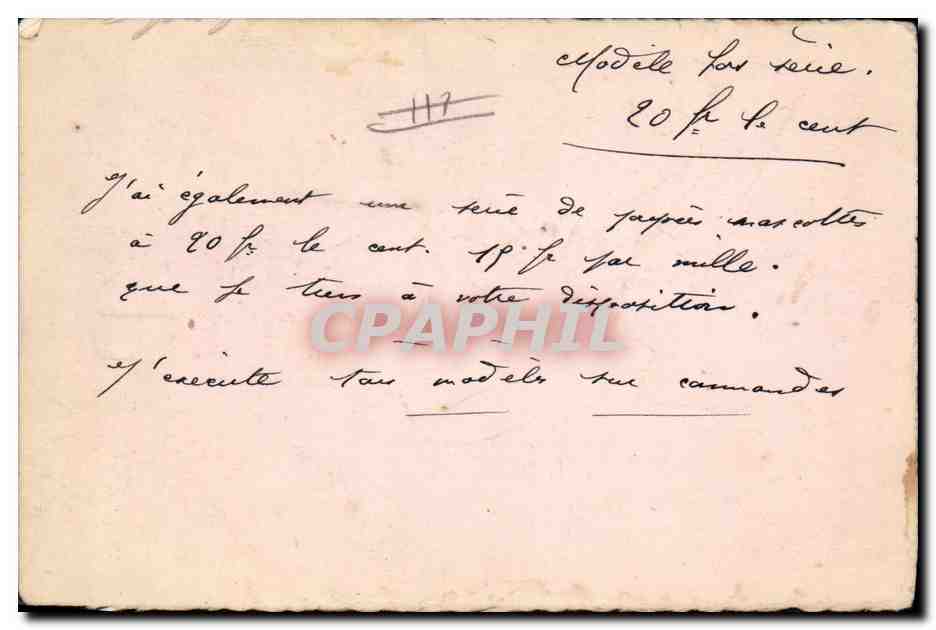 Modèle hors série.
20 fr le cent
111
J'ai également une série de poupées mascottes
à 20 fr le cent. 15 fr par mille.
que je tiens à votre disposition.
CPAPHIL
J'exécute tous modèles sur commandes